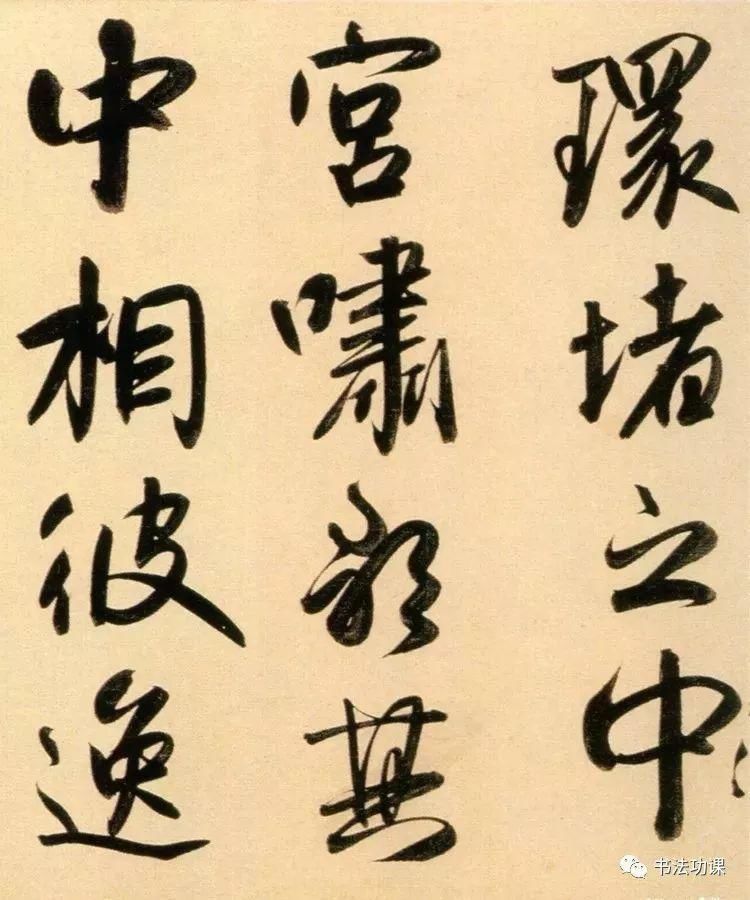 環堵之中
宮嘯歌其
中相彼逸
书法功课